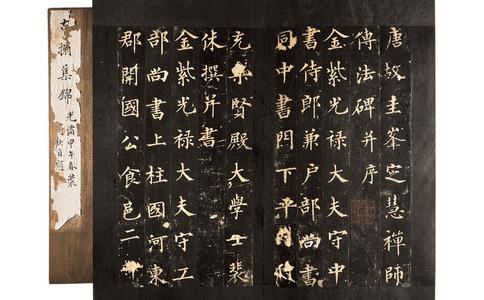 唐故圭峯定慧禪師
傳法碑并序
金紫光祿大夫守中
書侍郎兼户部尚書
同中書門下平
充集賢殿大學士裴
休撰并書
金紫光祿大夫守工
部尚書上柱國河東
郡開國公食邑二千
古搨集錦
光緒甲午春裝
自題